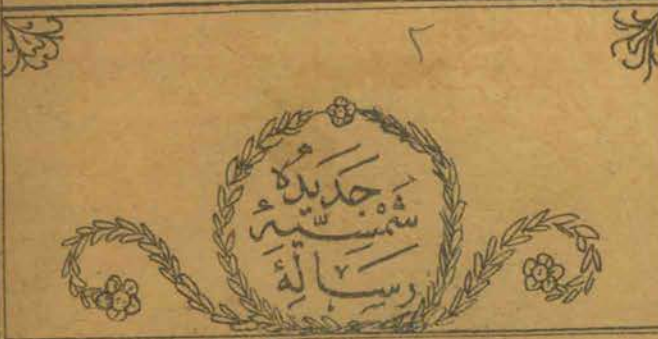 ٢
رِسَالَۀِ
شَمْسِيَّۀِ
جَدِيدَه